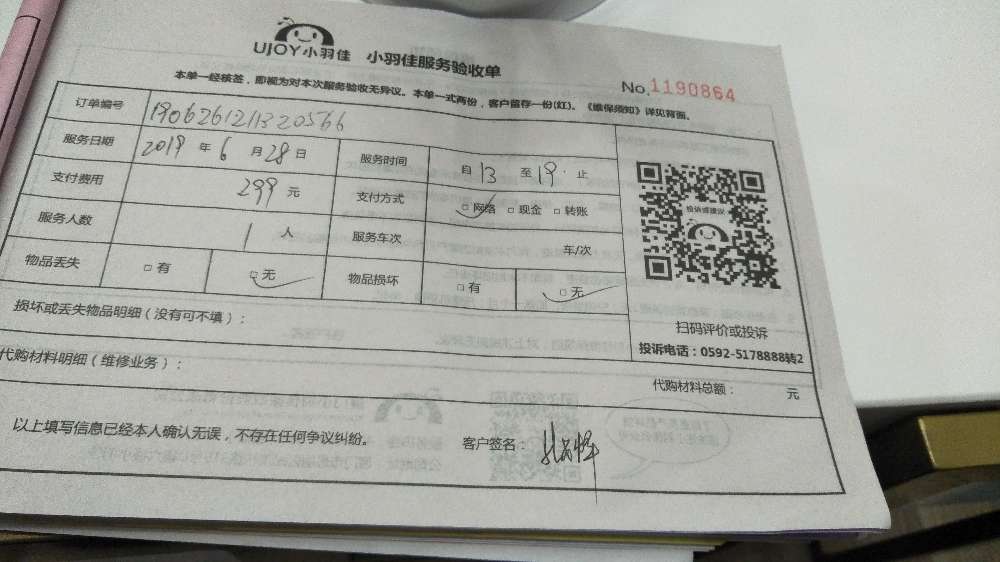 UJOY小羽佳 小羽佳服务验收单
No.1190864
本单一经核签，即视为对本次服务验收无异议。本单一式两份，客户留存一份(红)。《维保须知》详见背面。
订单编号 1906261211320566
服务日期 2019 年 6 月 28 日 服务时间 自 13 至 19 止
支付费用 299 元 支付方式 □网络 □现金 □转账
服务人数 1 人 服务车次 车/次
物品丢失 □有 □无 物品损坏 □有 □无
投诉或建议
扫码评价或投诉
投诉电话：0592-5178888转2
损坏或丢失物品明细（没有可不填）：
代购材料明细（维修业务）：
代购材料总额： 元
以上填写信息已经本人确认无误，不存在任何争议纠纷。 客户签名：